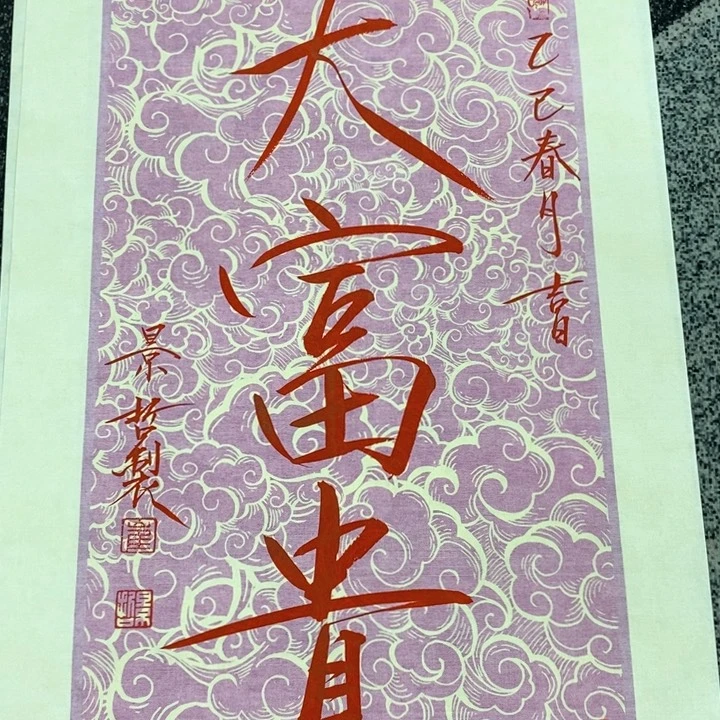 乙巳春月吉日
大富貴
景哲製